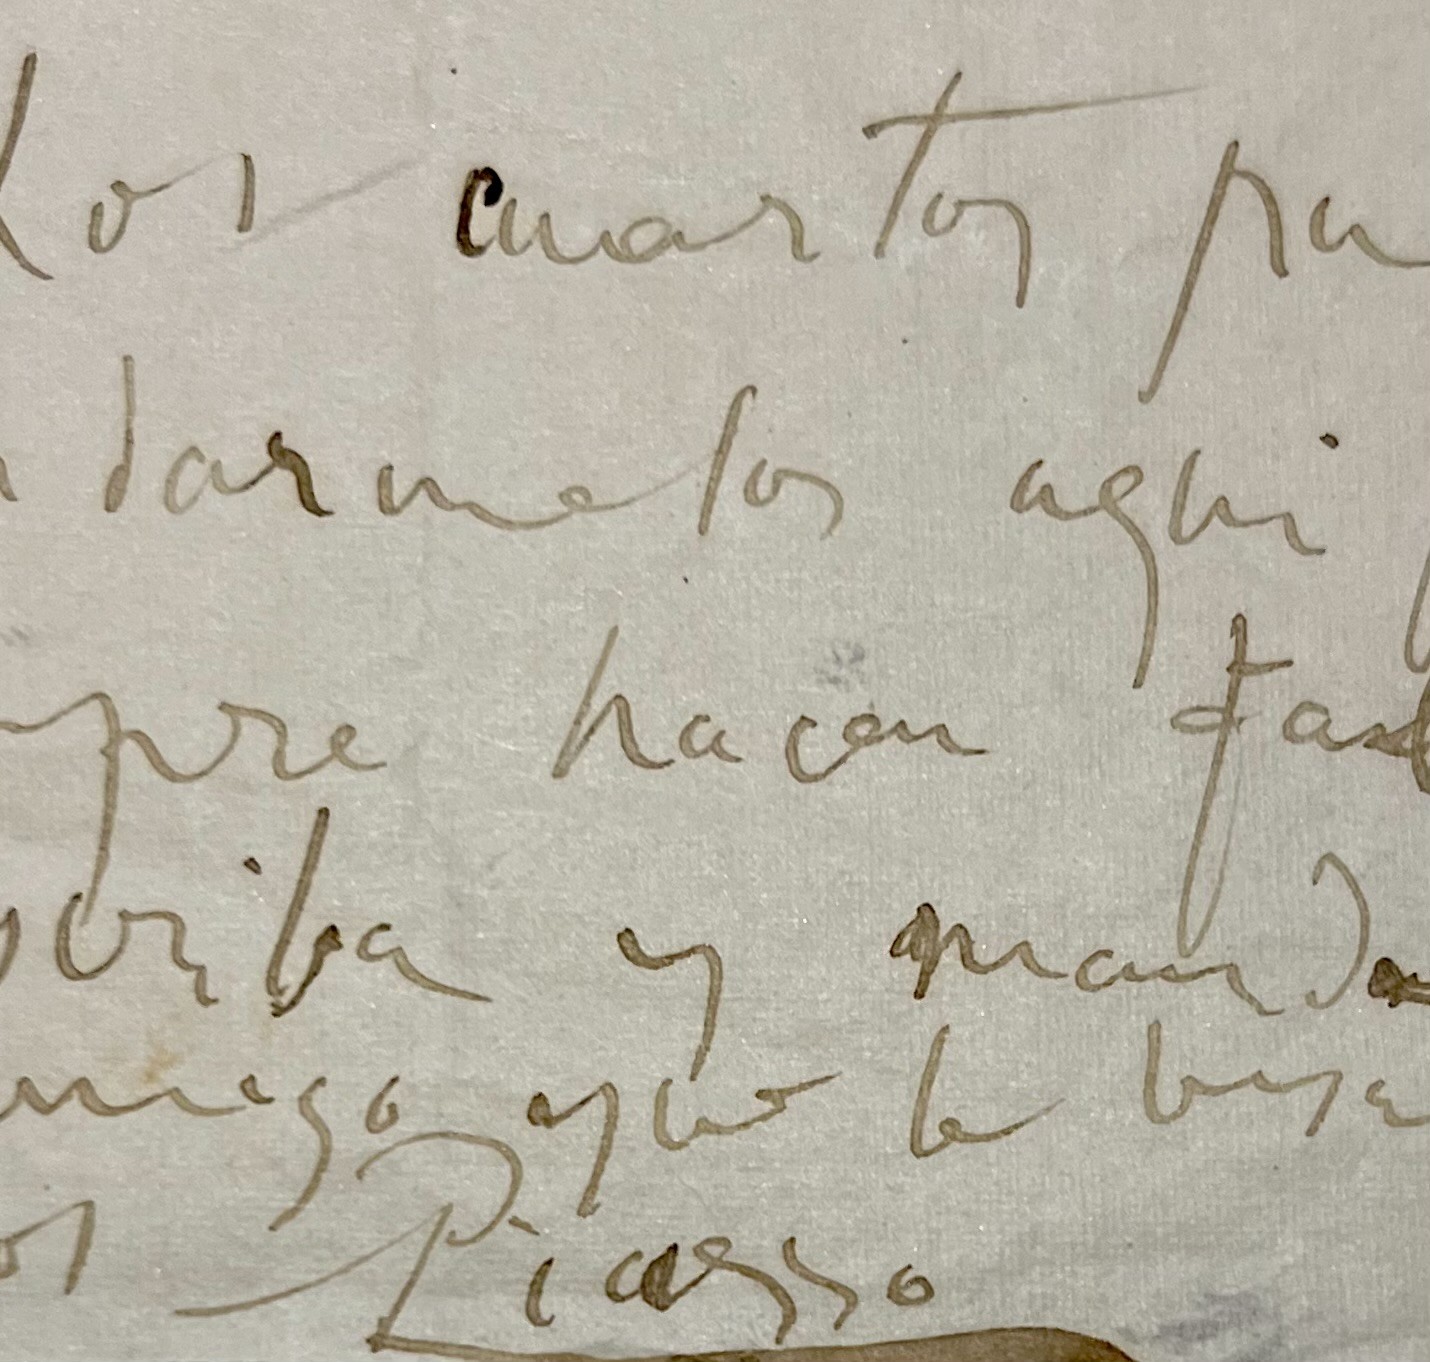 Los cuartos pu
darmelos aqui
mpre haçen fal
scriba y manda
amigo que le besa
os Picasso